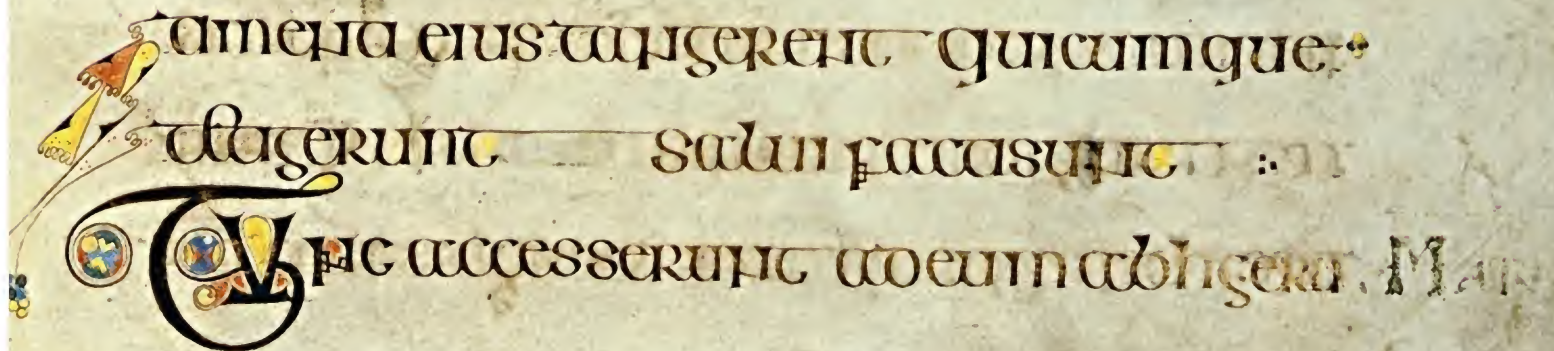 timenta eius tangerent quicumque
tetigerunt salui facti sunt :·
Tunc accesserunt ad eum ab